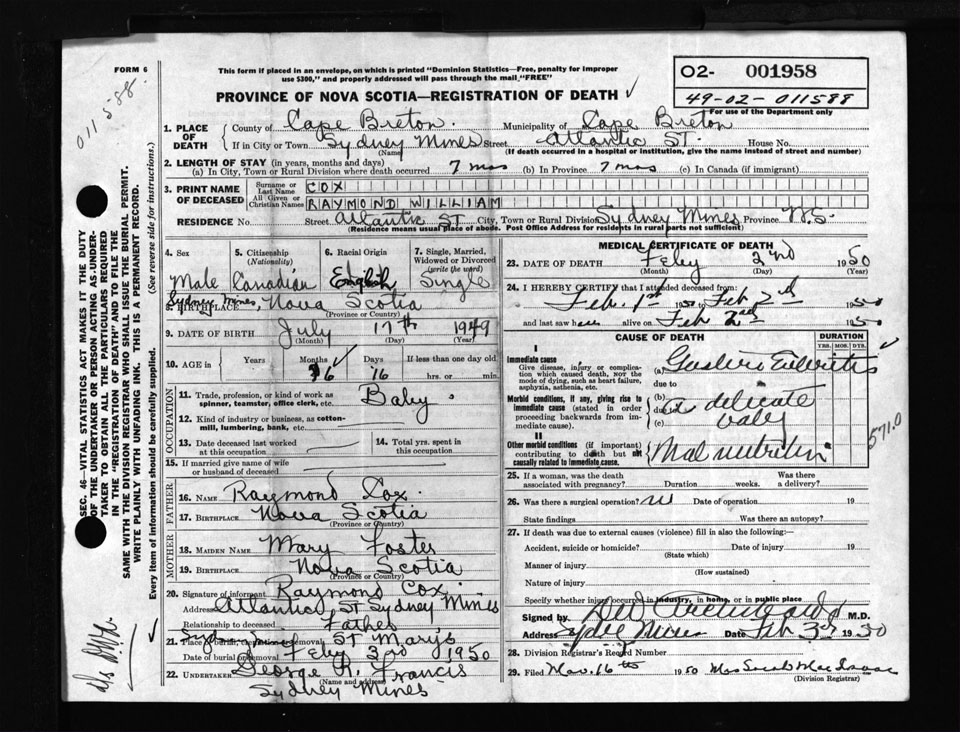 FORM 6
011588
This form if placed in an envelope, on which is printed "Dominion Statistics—Free, penalty for improper
use $300," and properly addressed will pass through the mail "FREE"
PROVINCE OF NOVA SCOTIA—REGISTRATION OF DEATH
02- 001958
49-02-011588
For use of Department Only
1. PLACE OF DEATH
County of Cape Breton. Municipality of Cape Breton
If in City or Town Sydney Mines Street Atlantic ST House No.
(Name) (If death occurred in a hospital or institution, give the name instead of street and number)
2. LENGTH OF STAY (in years, months and days)
(a) In City, Town or Rural Division where death occurred 7 mos (b) In Province 7 mos (c) In Canada (if immigrant)
3. PRINT NAME OF DECEASED
Surname or Last Name COX
All Given or Christian Names RAYMOND WILLIAM
RESIDENCE No. Street Atlantic ST City, Town or Rural Division Sydney Mines Province N.S.
(Residence means usual place of abode. Post Office Address for residents in rural parts not sufficient)
4. Sex 5. Citizenship (Nationality) 6. Racial Origin 7. Single, Married, Widowed or Divorced (write the word)
Male Canadian English Single
8. BIRTHPLACE Sydney Mines, Nova Scotia
(Province or Country)
9. DATE OF BIRTH July 17th 1949
(Month) (Day) (Year)
10. AGE in Years Months Days If less than one day old
6 16 hrs. or min.
OCCUPATION
11. Trade, profession, or kind of work as
spinner, teamster, office clerk, etc. Baby
12. Kind of industry or business, as cotton-
mill, lumbering, bank, etc.
13. Date deceased last worked at this occupation
14. Total yrs. spent in this occupation
15. If married give name of wife
or husband of deceased
FATHER
16. NAME Raymond Cox.
17. BIRTHPLACE Nova Scotia
(Province or Country)
MOTHER
18. MAIDEN NAME Mary Foster
19. BIRTHPLACE Nova Scotia
(Province or Country)
20. Signature of informant Raymond Cox.
Address Atlantic ST Sydney Mines
Relationship to deceased Father
21. Place of burial, or removal ST Mary's
Date of burial or removal Feby 3rd 1950
22. UNDERTAKER George R. Francis
(Name and address)
Sydney Mines
MEDICAL CERTIFICATE OF DEATH
23. DATE OF DEATH Feby 2nd 1950
(Month) (Day) (Year)
24. I HEREBY CERTIFY that I attended deceased from:
Feb. 1st 1950 to Feb 2nd 1950
and last saw h alive on Feb 2nd 1950
CAUSE OF DEATH
DURATION
YRS. MOS. DYS.
I
Immediate cause
Give disease, injury or complica-
tion which caused death, not the
mode of dying, such as heart failure,
asphyxia, asthenia, etc.
(a) Gastro Enteritis
due to
Morbid conditions, if any, giving rise to
immediate cause (stated in order
proceeding backwards from im-
mediate cause).
(b) a delicate
due to
(c) baby
II
Other morbid conditions (if important)
contributing to death but not
causally related to immediate cause.
Mal nutrition
571.0
25. If a woman, was the death
associated with pregnancy? Duration weeks. Was there a delivery?
26. Was there a surgical operation? Date of operation 19
State findings Was there an autopsy?
27. If death was due to external causes (violence) fill in also the following:
Accident, suicide or homicide? Date of injury 19
(State which)
Manner of injury
(How sustained)
Nature of injury
Specify whether injury occurred in industry, in home, or in public place
Signed by M.D.
Address Sydney Mines Date Feb 3rd 1950
28. Division Registrar's Record Number
29. Filed Mar. 16th 1950 Mrs Sarah MacIsaac
(Division Registrar)
SEC. 46—VITAL STATISTICS ACT MAKES IT THE DUTY
OF THE UNDERTAKER OR PERSON ACTING AS UNDER-
TAKER TO OBTAIN ALL THE PARTICULARS REQUIRED
IN THE "REGISTRATION OF DEATH" AND TO FILE THE
SAME WITH THE DIVISION REGISTRAR WHO SHALL ISSUE THE BURIAL PERMIT.
WRITE PLAINLY WITH UNFADING INK. THIS IS A PERMANENT RECORD.
Every item of information should be carefully supplied. (See reverse side for instructions.)